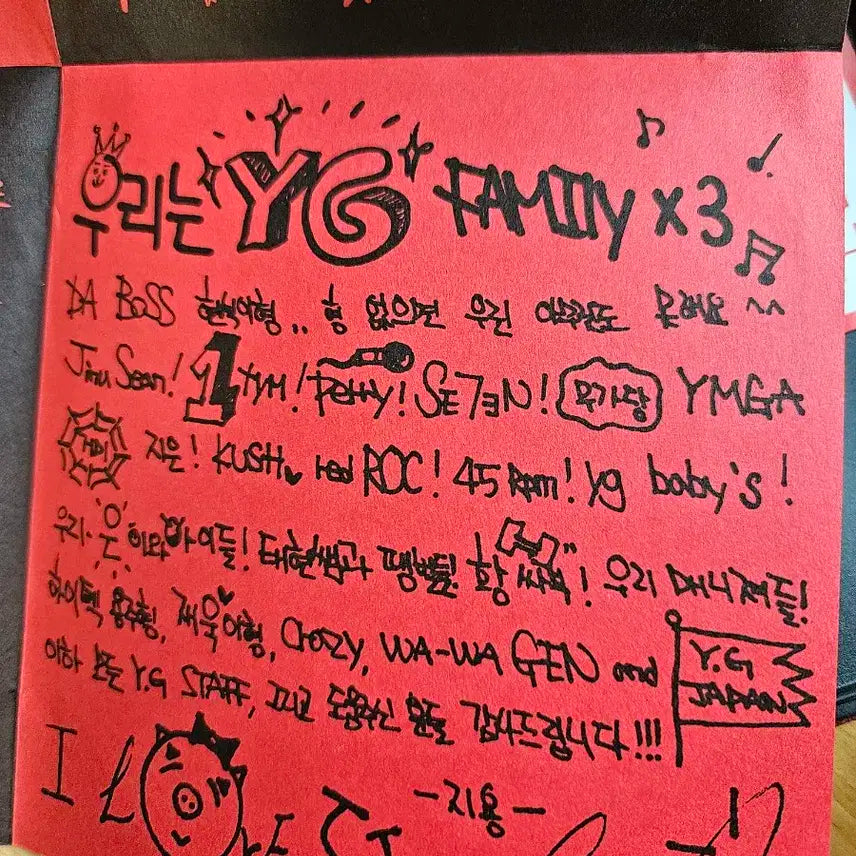 우리는 YG FAMIlly x 3
DA BOSS 현석이형.. 형 없으면 우린 아무것도 못해요 ^^
Jinu Sean! 1TYM! Perry! SE7EN! 무가당 YMGA
거미 지은! KUSH♥ red ROC! 45 Rpm! yg baby's!
우리 은이와 아이들! 태현쌤과 땡벌들! 황싸부! 우리 매니저들!
하이텍 용주형, 재욱이형, Crazy, WA-WA GEN and Y.G JAPAN
이하 모든 Y.G STAFF, 그리고 도움주신 분들 감사드립니다!!!
I LOVE
-지용-